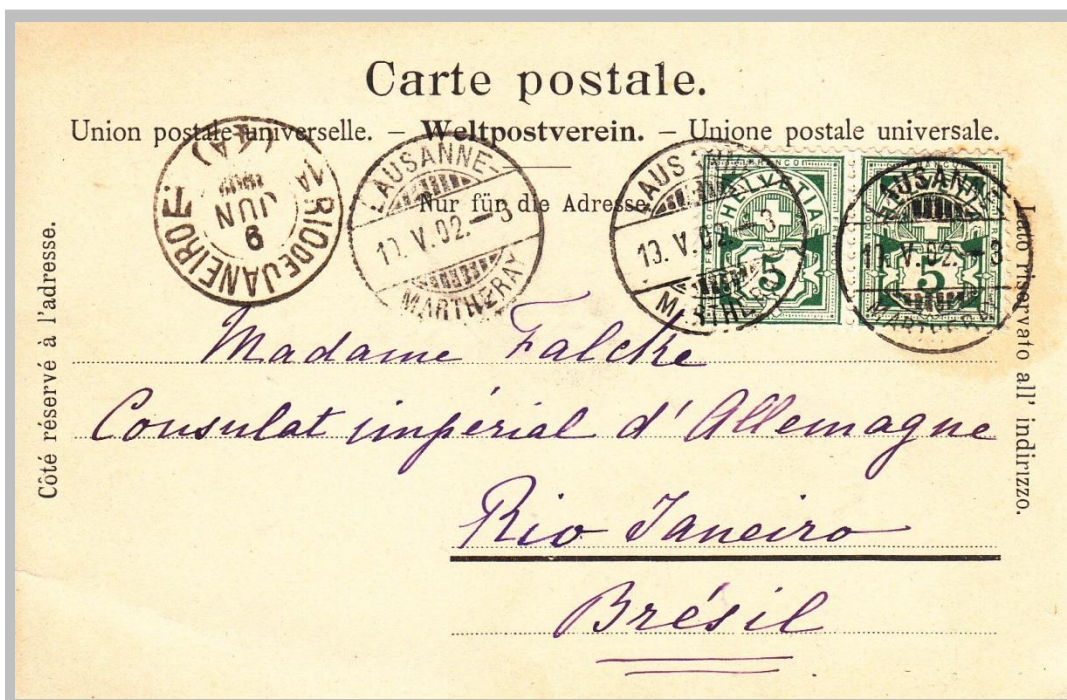 Carte postale.
Union postale universelle. – Weltpostverein. – Unione postale universale.
Nur für die Adresse.
Côté réservé à l'adresse.
Lato riservato all' indirizzo.
1A RIO DE JANEIRO E.
(4A)
9
JUN
LAUSANNE
10. V. 02. – 3
MARTHERAY
LAUSANNE
10. V. 02. – 3
MARTHERAY
LAUSANNE
10. V. 02. – 3
MARTHERAY
FRANCO
HELVETIA
5
5
Madame Falcke
Consulat impérial d'Allemagne
Rio Janeiro
Brésil